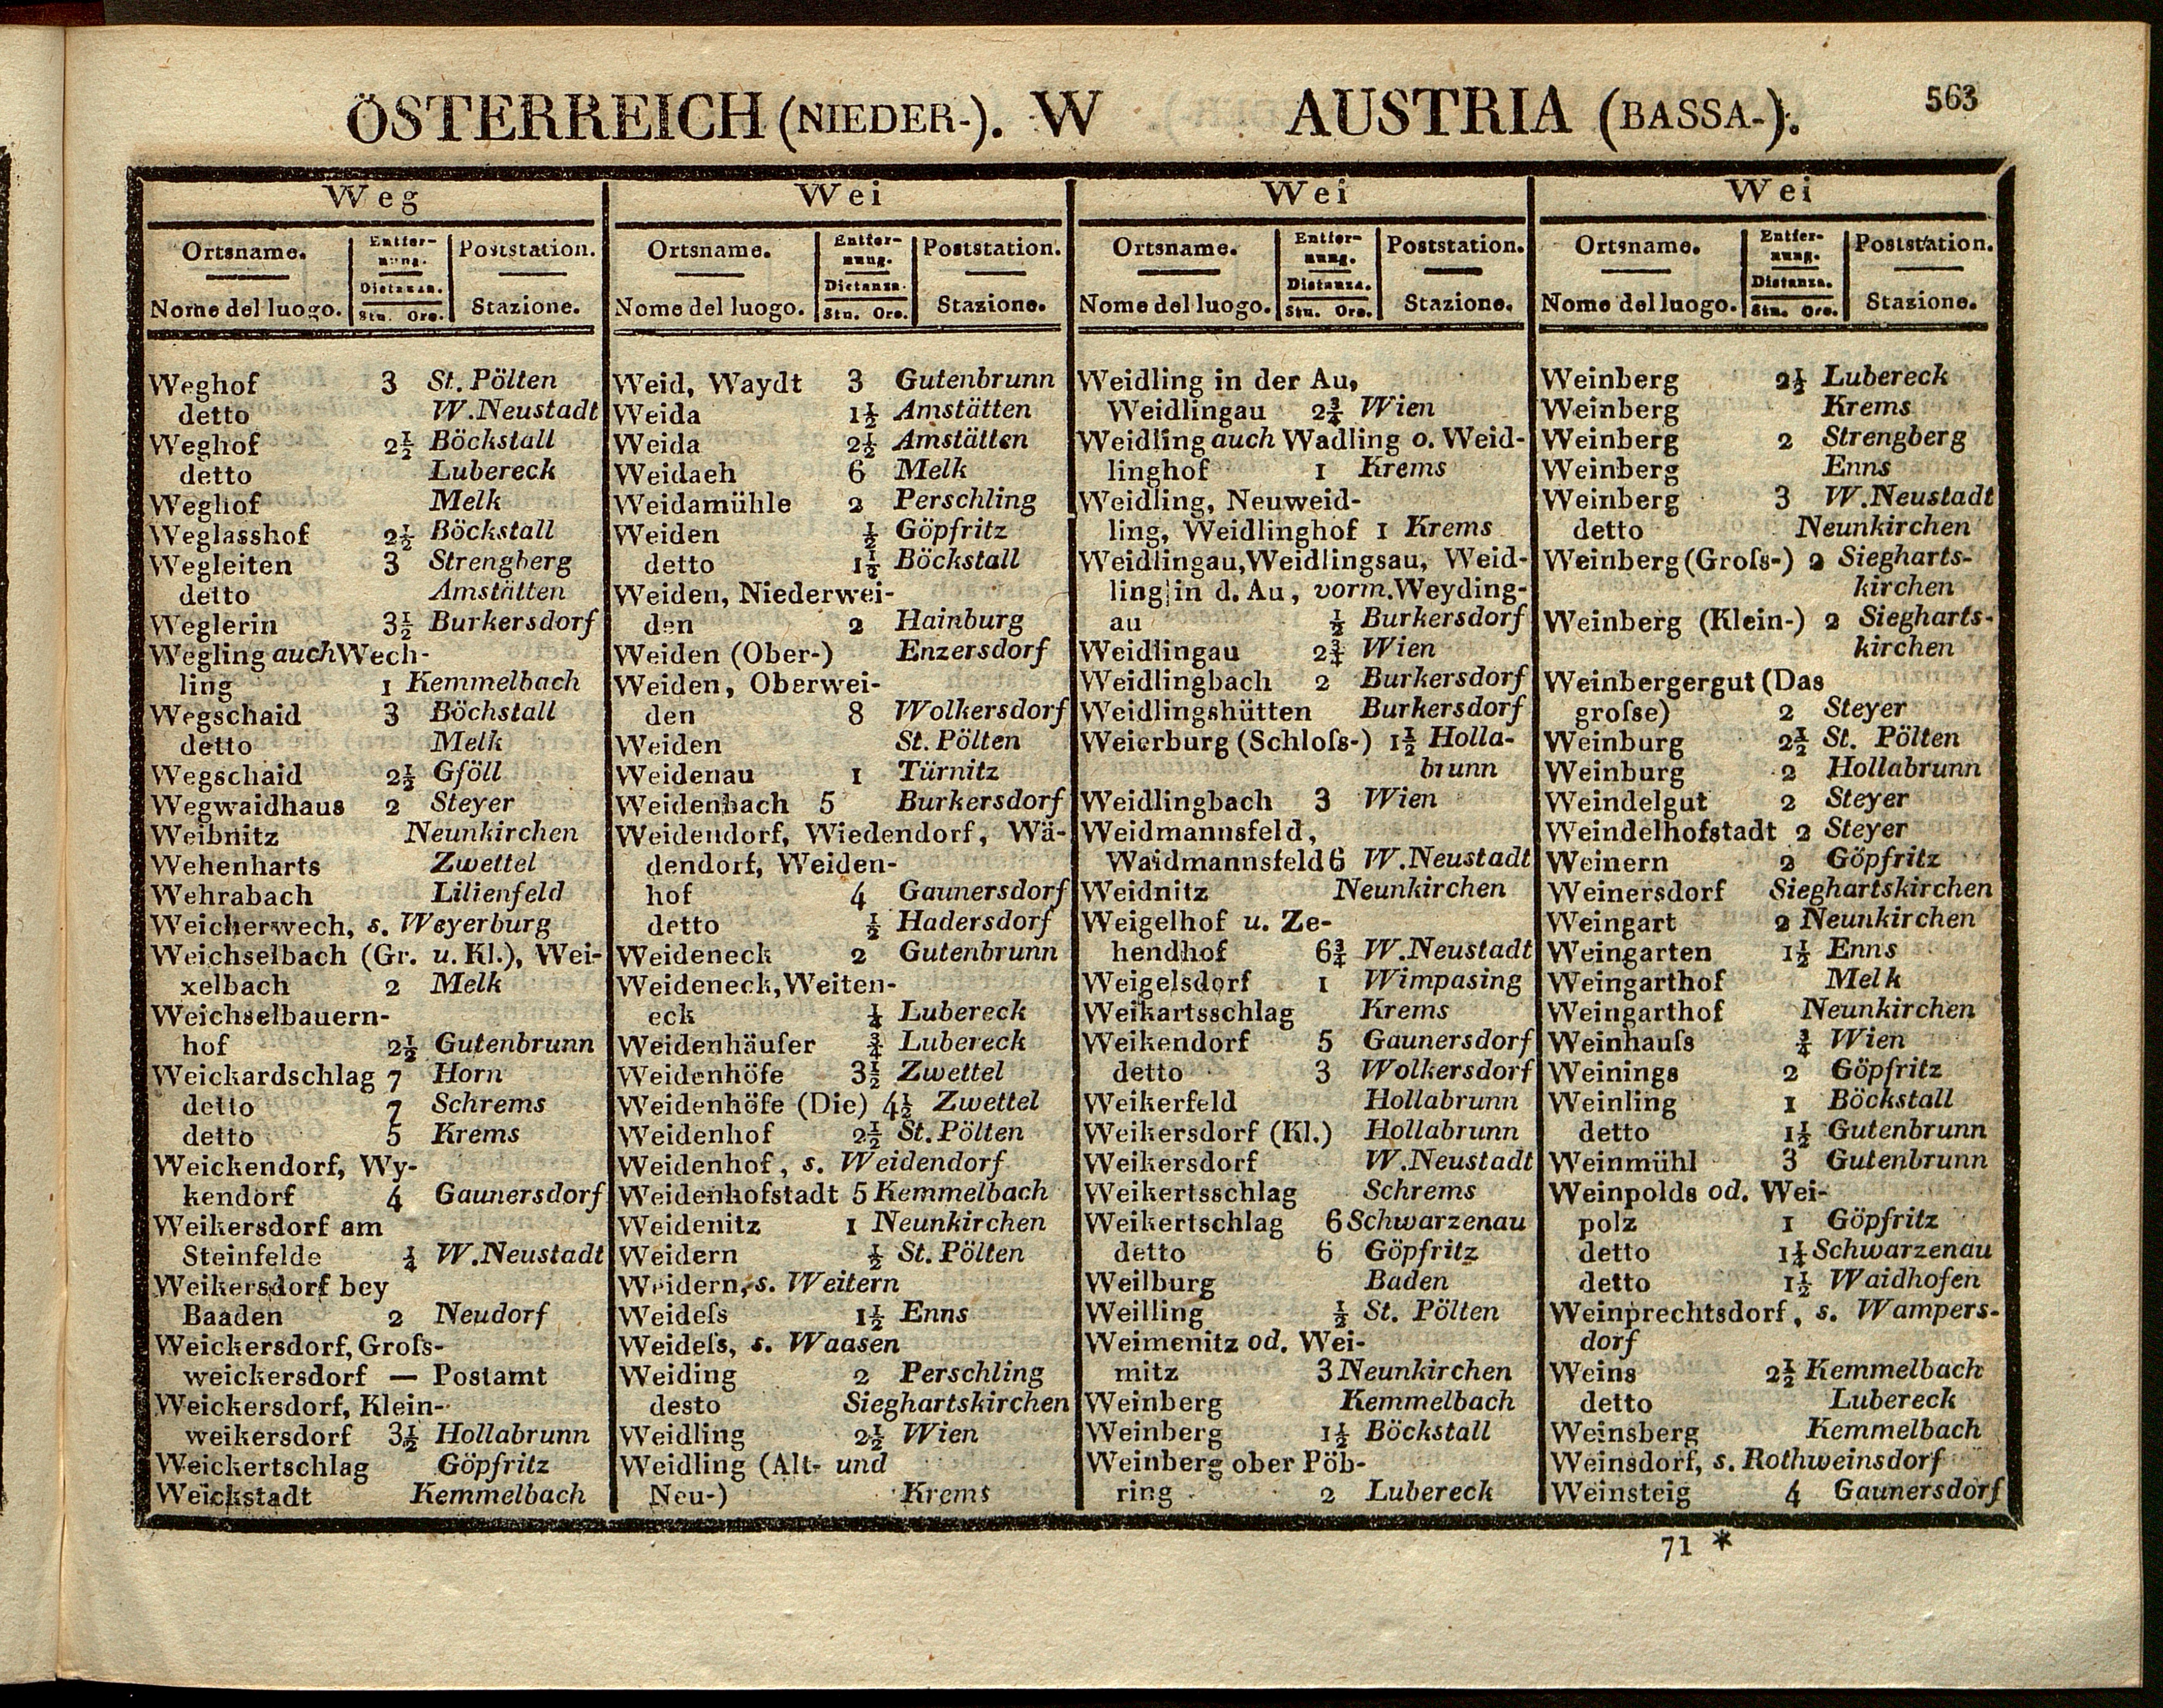 ÖSTERREICH (NIEDER-). W AUSTRIA (BASSA-). 563
Weg
Ortsname. Entfernung. Poststation.
Nome del luogo. Distanza. Stn. Ore. Stazione.
Weghof 3 St. Pölten
detto W. Neustadt
Weghof 2½ Böckstall
detto Lubereck
Weghof Melk
Weglasshof 2½ Böckstall
Wegleiten 3 Strengberg
detto Amstätten
Weglerin 3½ Burkersdorf
Wegling auch Wech-
ling 1 Kemmelbach
Wegschaid 3 Böchstall
detto Melk
Wegschaid 2½ Gföll
Wegwaidhaus 2 Steyer
Weibnitz Neunkirchen
Wehenharts Zwettel
Wehrabach Lilienfeld
Weicherwech, s. Weyerburg
Weichselbach (Gr. u. Kl.), Wei-
xelbach 2 Melk
Weichselbauern-
hof 2½ Gutenbrunn
Weickardschlag 7 Horn
detto 7 Schrems
detto 5 Krems
Weickendorf, Wy-
kendorf 4 Gaunersdorf
Weikersdorf am
Steinfelde ¼ W. Neustadt
Weikersdorf bey
Baaden 2 Neudorf
Weickersdorf, Groſs-
weickersdorf — Postamt
Weickersdorf, Klein-
weikersdorf 3½ Hollabrunn
Weickertschlag Göpfritz
Weickstadt Kemmelbach
Wei
Ortsname. Entfernung. Poststation.
Nome del luogo. Distanza. Stn. Ore. Stazione.
Weid, Waydt 3 Gutenbrunn
Weida 1½ Amstätten
Weida 2½ Amstätten
Weidaeh 6 Melk
Weidamühle 2 Perschling
Weiden ½ Göpfritz
detto 1½ Böckstall
Weiden, Niederwei-
den 2 Hainburg
Weiden (Ober-) Enzersdorf
Weiden, Oberwei-
den 8 Wolkersdorf
Weiden St. Pölten
Weidenau 1 Türnitz
Weidenbach 5 Burkersdorf
Weidendorf, Wiedendorf, Wä-
dendorf, Weiden-
hof 4 Gaunersdorf
detto ½ Hadersdorf
Weideneck 2 Gutenbrunn
Weideneck, Weiten-
eck ¼ Lubereck
Weidenhäuſer ¾ Lubereck
Weidenhöfe 3½ Zwettel
Weidenhöfe (Die) 4½ Zwettel
Weidenhof 2½ St. Pölten
Weidenhof, s. Weidendorf
Weidenhofstadt 5 Kemmelbach
Weidenitz 1 Neunkirchen
Weidern ½ St. Pölten
Weidern, s. Weitern
Weideſs 1½ Enns
Weideſs, s. Waasen
Weiding 2 Perschling
desto Sieghartskirchen
Weidling 2½ Wien
Weidling (Alt- und
Neu-) Krems
Wei
Ortsname. Entfernung. Poststation.
Nome del luogo. Distanza. Stn. Ore. Stazione.
Weidling in der Au,
Weidlingau 2¾ Wien
Weidling auch Wadling o. Weid-
linghof 1 Krems
Weidling, Neuweid-
ling, Weidlinghof 1 Krems
Weidlingau, Weidlingsau, Weid-
ling in d. Au, vorm. Weyding-
au ½ Burkersdorf
Weidlingau 2¾ Wien
Weidlingbach 2 Burkersdorf
Weidlingshütten Burkersdorf
Weierburg (Schloſs-) 1½ Holla-
brunn
Weidlingbach 3 Wien
Weidmannsfeld,
Waidmannsfeld 6 W. Neustadt
Weidnitz Neunkirchen
Weigelhof u. Ze-
hendhof 6¾ W. Neustadt
Weigelsdorf 1 Wimpasing
Weikartsschlag Krems
Weikendorf 5 Gaunersdorf
detto 3 Wolkersdorf
Weikerfeld Hollabrunn
Weikersdorf (Kl.) Hollabrunn
Weikersdorf W. Neustadt
Weikertsschlag Schrems
Weikertschlag 6 Schwarzenau
detto 6 Göpfritz
Weilburg Baden
Weilling ½ St. Pölten
Weimenitz od. Wei-
mitz 3 Neunkirchen
Weinberg Kemmelbach
Weinberg 1½ Böckstall
Weinberg ober Pöb-
ring 2 Lubereck
Wei
Ortsname. Entfernung. Poststation.
Nome del luogo. Distanza. Stn. Ore. Stazione.
Weinberg 2½ Lubereck
Weinberg Krems
Weinberg 2 Strengberg
Weinberg Enns
Weinberg 3 W. Neustadt
detto Neunkirchen
Weinberg (Groſs-) 2 Siegharts-
kirchen
Weinberg (Klein-) 2 Siegharts-
kirchen
Weinbergergut (Das
groſse) 2 Steyer
Weinburg 2½ St. Pölten
Weinburg 2 Hollabrunn
Weindelgut 2 Steyer
Weindelhofstadt 2 Steyer
Weinern 2 Göpfritz
Weinersdorf Sieghartskirchen
Weingart 2 Neunkirchen
Weingarten 1½ Enns
Weingarthof Melk
Weingarthof Neunkirchen
Weinhauſs ¾ Wien
Weinings 2 Göpfritz
Weinling 1 Böckstall
detto 1½ Gutenbrunn
Weinmühl 3 Gutenbrunn
Weinpolds od. Wei-
polz 1 Göpfritz
detto 1¼ Schwarzenau
detto 1½ Waidhofen
Weinprechtsdorf, s. Wampers-
dorf
Weins 2½ Kemmelbach
detto Lubereck
Weinsberg Kemmelbach
Weinsdorf, s. Rothweinsdorf
Weinsteig 4 Gaunersdorf
71 *